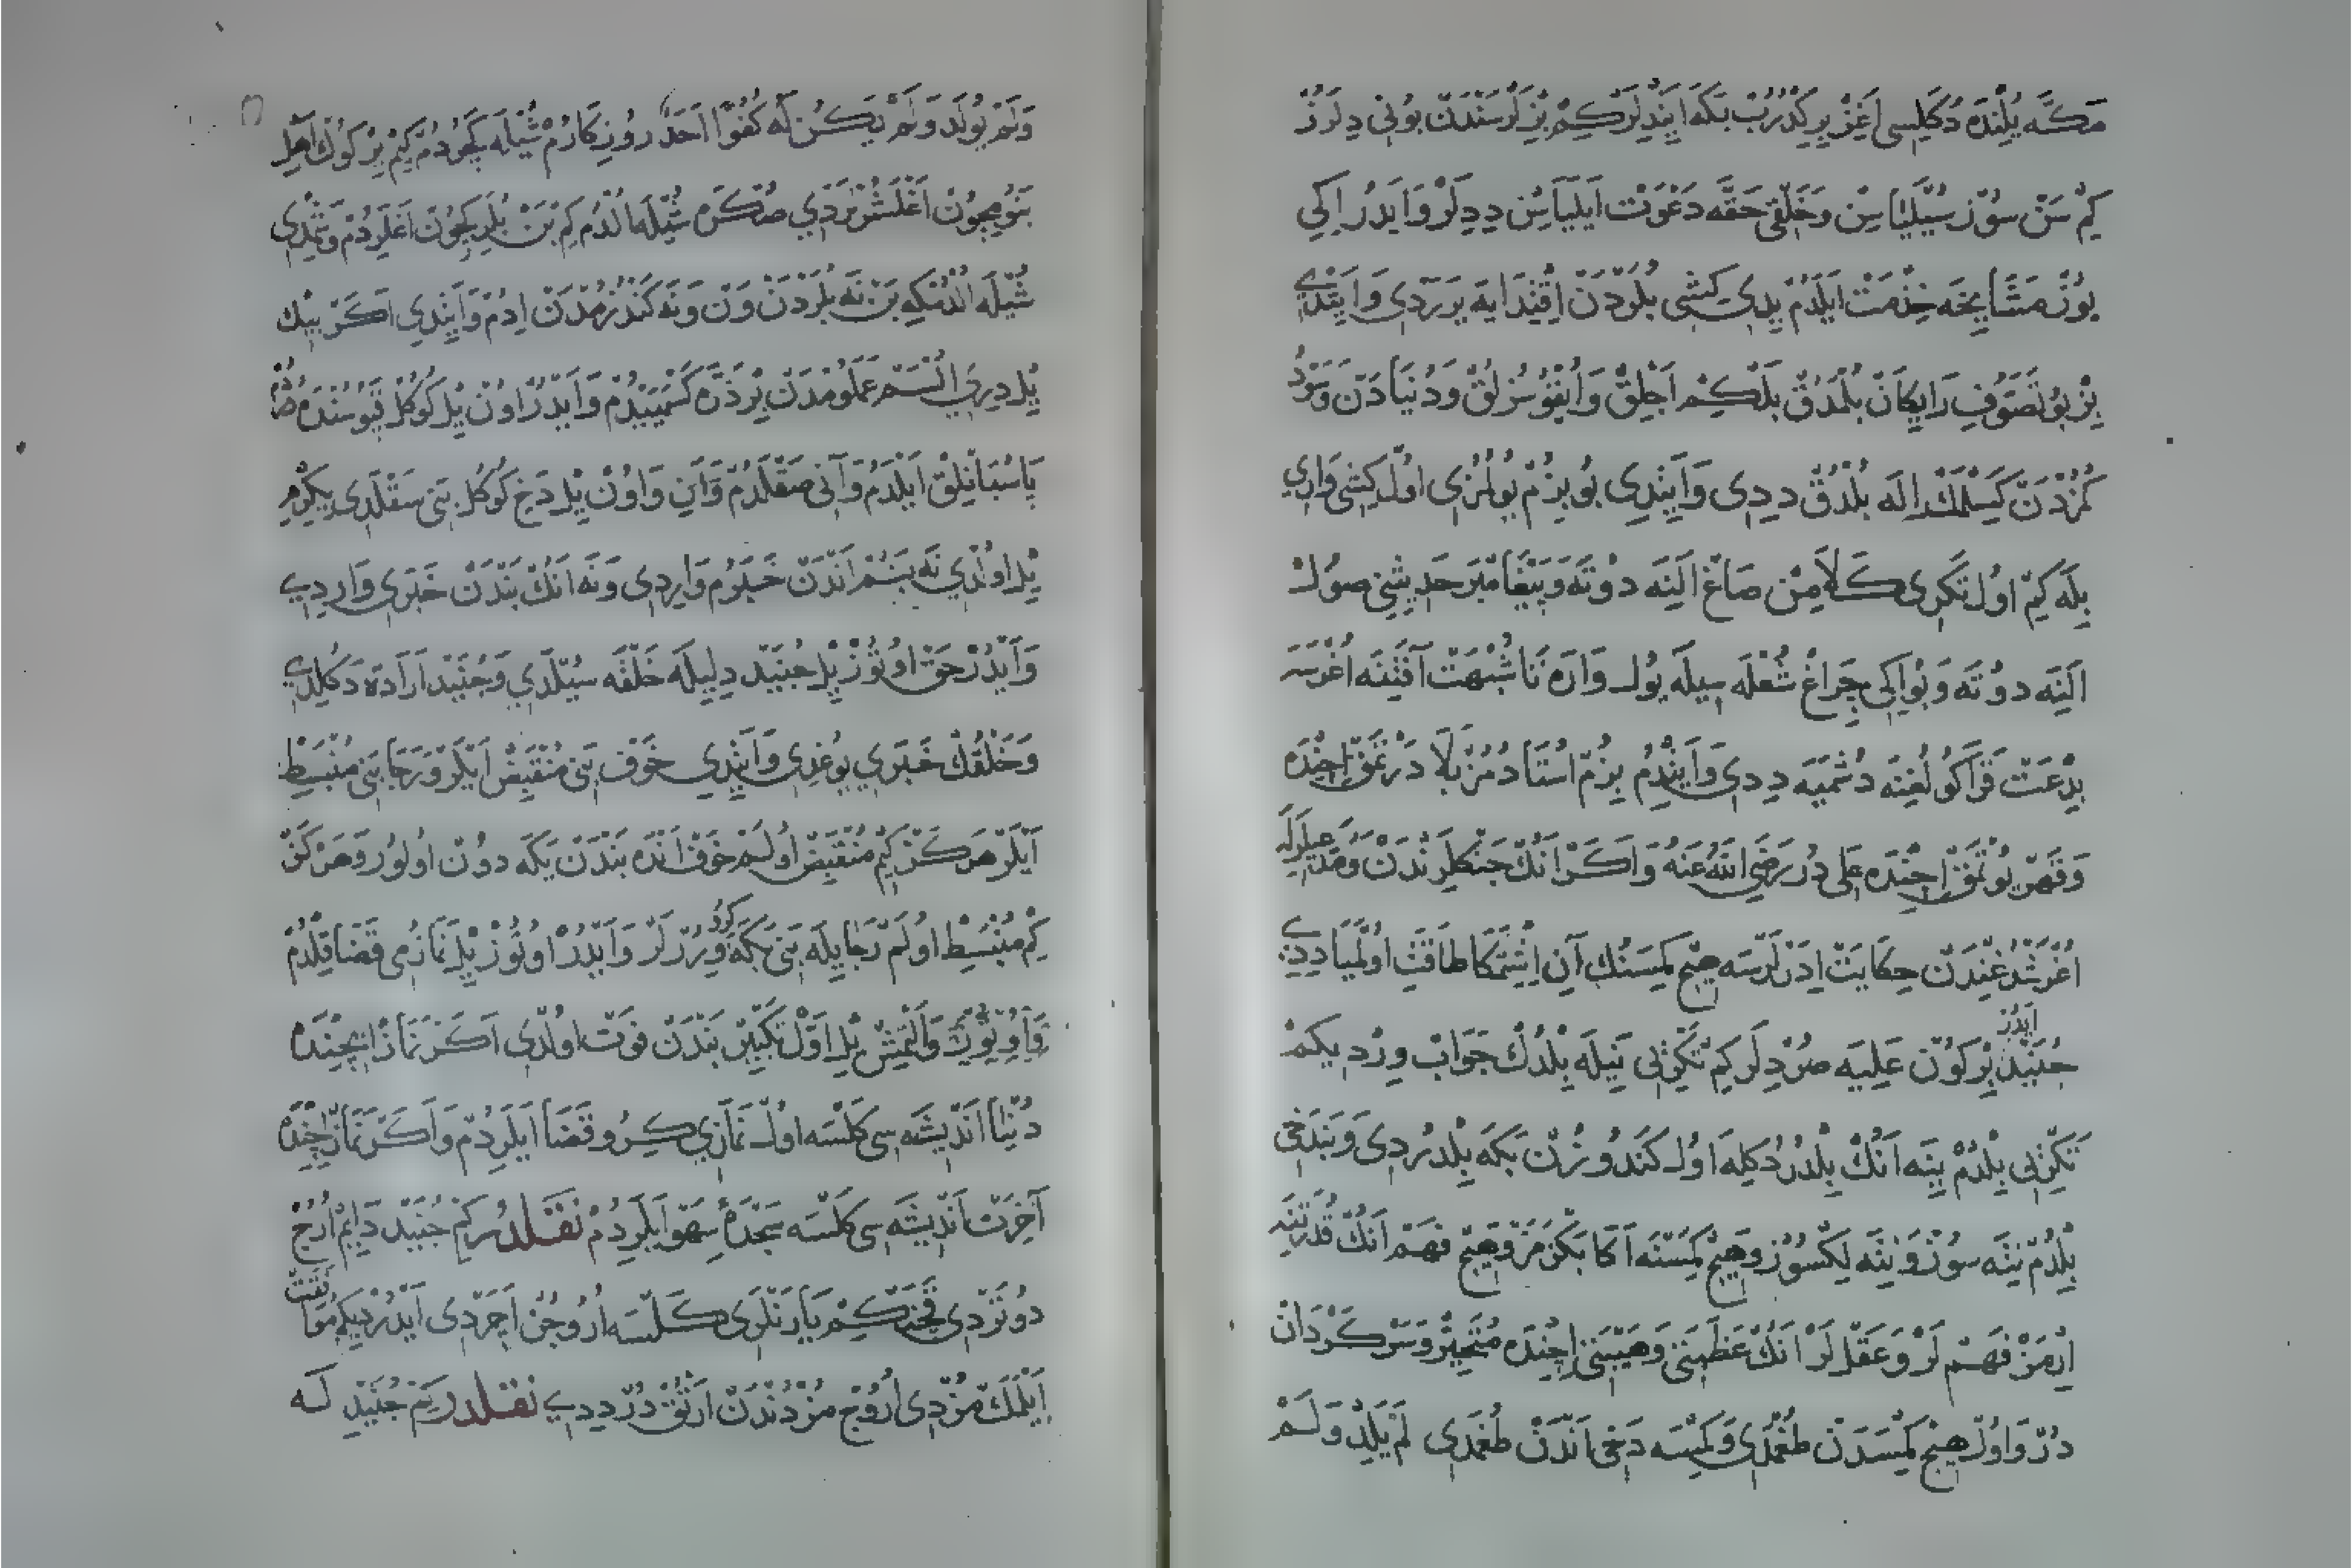 مَكَّه يُلِنْدَه دُكَلِيسِى اَغِزْ بِرِكْدُرُبْ بَكَه اَيِتْدِلَرْكِمْ بِزْلَرْ سَنْدَنْ بُونِى دِلَرُزْ
كِمْ سَنْ سُوزْ سُيْلَيَاسِنْ وَخَلْقِى حَقَّه دَعْوَتْ اَيْلَيَاسِنْ دِدِلَرْ وَاَيْدُرْ اِكِى
يُوزْ مَشَايِخَه خِذْمَتْ اَيْلَدُمْ يِدِى كِشِى بُلَرْدَنْ اِقْتِدَايَه يَرَرْدِى وَاَيِتْدِى
بِزْ بُو تَصَوُّفِ رَايِكَانْ بُلْمَدُقْ بَلْكِمْ اَجْلِقْ وَاُيْقُوسُزْلُقْ وَدُنْيَادَنْ وَسَوْدُ
كُمُزْدَنْ كَسِلْمَكْ اِلَه بُلْدُقْ دِدِى وَاَيِتْدِى بُو بِزُمْ يُولُمُزِى اُولْ كِشِى وَارِدِى
بِلَه كِمْ اُولْ تَكْرِى كَلَامِنْ صَاغْ اَلِنَه دُوتَه وَپَيْغَامْبَرْ حَدِيثِنِى صُولْ
اَلِنَه دُوتَه وَبُو اِكِى چِرَاغْ شُعْلَه سِيلَه يُولْ وَارَه تَا شُبْهَتْ آفَتِنَه اُغْرَمَيَه
بِدْعَتْ قَرَاكُولُغِنَه دُشْمَيَه دِدِى وَاَيِتْدِمْ بِزُمْ اُسْتَادُمُزْ بَلَا دَرْتَغِى اِچِنْدَه
وَقَهْرْ يُوتْمَقْ اِچِنْدَه عَلِى دُرْ رَضِىَ اللّٰهُ عَنْهُ وَاَكَرْ اَنُكْ جَنْكَلِرِنْدَنْ وَمُدَّعِيلَرِلَه
اُغْرَشْدُغِنْدَنْ حِكَايَتْ اِدَرْلَرْسَه هِيچْ كِمْسَنُكْ آنِ اِشِتْمَكَا طَاقَتِ اُولْمَيَا دِدِى
جُنَيْدْ اَيْدُرْ بِرْ كُونْ عَلِيَه صُرْدِلَرْ كِمْ تَكْرِيِى نِيلَه بِلْدُكْ جَوَابْ وِرْدِيكِمْ
تَكْرِيِى بِلْدُمْ يِنَه اَنُكْ بِلْدُرْدُكِلَه اُولْ كَنْدُوزُنْ بَكَه بِلْدُرْدِى وَبَنْ دَخِى
بِلْدُمْ نِتَه سُوزْ وَنِتَه يِكْسُوزْ وَهِيچْ كِمْسَنَه اَكَا بَكْزَمَزْ وَهِيچْ فَهْمْ اَنُكْ قُدْرَتِنَه
اِرْمَزْ فَهْمْ لَرْ وَعَقِلْ لَرْ اَنُكْ عَظَمَتِى وَهَيْبَتِى اِچِنْدَه مُتَحَيِّرْ وَسَرْكَرْدَانْ
دُرْ وَاُولْ هِيچْ كِمْسَدَنْ طُغْمَدِى وَكِمْسَه دَخِى اَنْدَنْ طُغْمَدِى لَمْ يَلِدْ وَلَمْ
وَلَمْ يُولَدْ وَلَمْ يَكُنْ لَهُ كُفُوًا اَحَدٌ رُوزِكَارُمْ شُيْلَه كَچُرْدُمْ كِمْ يِرْ كُوكْ اَهْلِ
بَنُومِچُونْ اَغْلَشُرْلَرْدِى صُكْرَه شُيْلَه اُلْدُمْ كِمْ بَنْ بُلَرِكچُونْ اَغْلَرْدُمْ وَشِمْدِى
شُيْلَه اُلْدُمْكِه بَنْ نَه بُلَرْدَنْ وَنْ وَنَه كَنْدُزُمْدَنْ اِدُمْ وَاَيِتْدِى اَكَرْ بِيكْ
يِلْ دِرِى اُلْسَمْ عَمَلُومْدَنْ بِرْ ذَرَّه كَسْمَيَيْدُمْ وَاَيْدُرْ اُونْ يِلْ كُوكُلْ قَپُوسُنْدَه
پَاسْبَانْلِقْ اَيْلَدُمْ وَآنِى صَقْلَدُمْ وَآنِ وَاُونْ يِلْ دَخِ كُوكُلْ بَنِى سَقْلَدِى يِكِرْمِ
يِلْ اُولْدِى نَه بَنُمْ اَنْدَنْ خَبَرُمْ وَارِدِى وَنَه اَنُكْ بَنْدَنْ خَبَرِى وَارِدِى
وَاَيْدُرْ حَقْ اُوتُوزْ يِلْ جُنَيْدْ دِلِيلَه خَلْقَه سُيْلَدِى وَجُنَيْدْ اَرَادَه دَكُلِدِى
وَخَلْقُكْ خَبَرِى يُوغِدِى وَاَيِتْدِى خَوْفْ بَنِى مُنْقَبِضْ اَيْلَرْ وَرَجَا بَنِى مُنْبَسِطْ
اَيْلَرْ هَرْكَزْ كِمْ مُنْقَبِضْ اُولَمْ خَوْفْ اَنْدَه بَنْدَنْ يَكَه دُونْ اُولُورْ وَهَرْكَزْ
كِمْ مُنْبَسِطْ اُولَمْ رَجَايِلَه بَنِى بَكَه كِرُو وِرُرْلَرْ وَاَيْدُرْ اُوتُوزْ يِلْ نَمَازُمِى قَضَا قِلْدُمْ
اَلْتْمِشْ يِلْ اَوَّلْ تَكْبِيرْ بَنْدَنْ فَوْتْ اُولْدِى اَكَرْ نَمَازْ اِچِنْدَه
دُنْيَا اَنْدِيشَه سِى كَلْسَه اُولْ نَمَازِى كِرُو قَضَا اَيْلَرِدُمْ وَاَكَرْ نَمَازْ اِچِنْدَه
آخِرَتْ اَنْدِيشَه سِى كَلْسَه سَجْدَهٔ سَهْو اَيْلَرِدُمْ نَقْلَدُرْ كِمْ جُنَيْدْ دَايِمْ اُرُجْ
دُوتَرْدِى قَچَنْكِمْ يَارَنْلَرِى كَلْسَه اُرُوجُنْ اَچَرْدِى اَيْدُرْدِيكِمْ مُوَافَقَتْ
اَيْلَمَكْ مُزْدِى اُرُوجْ مُزْدُنْدَنْ اَرْتُقْ دُرْ دِدِى نَقْلَدُرْ كِمْ جُنَيْدِ كَه